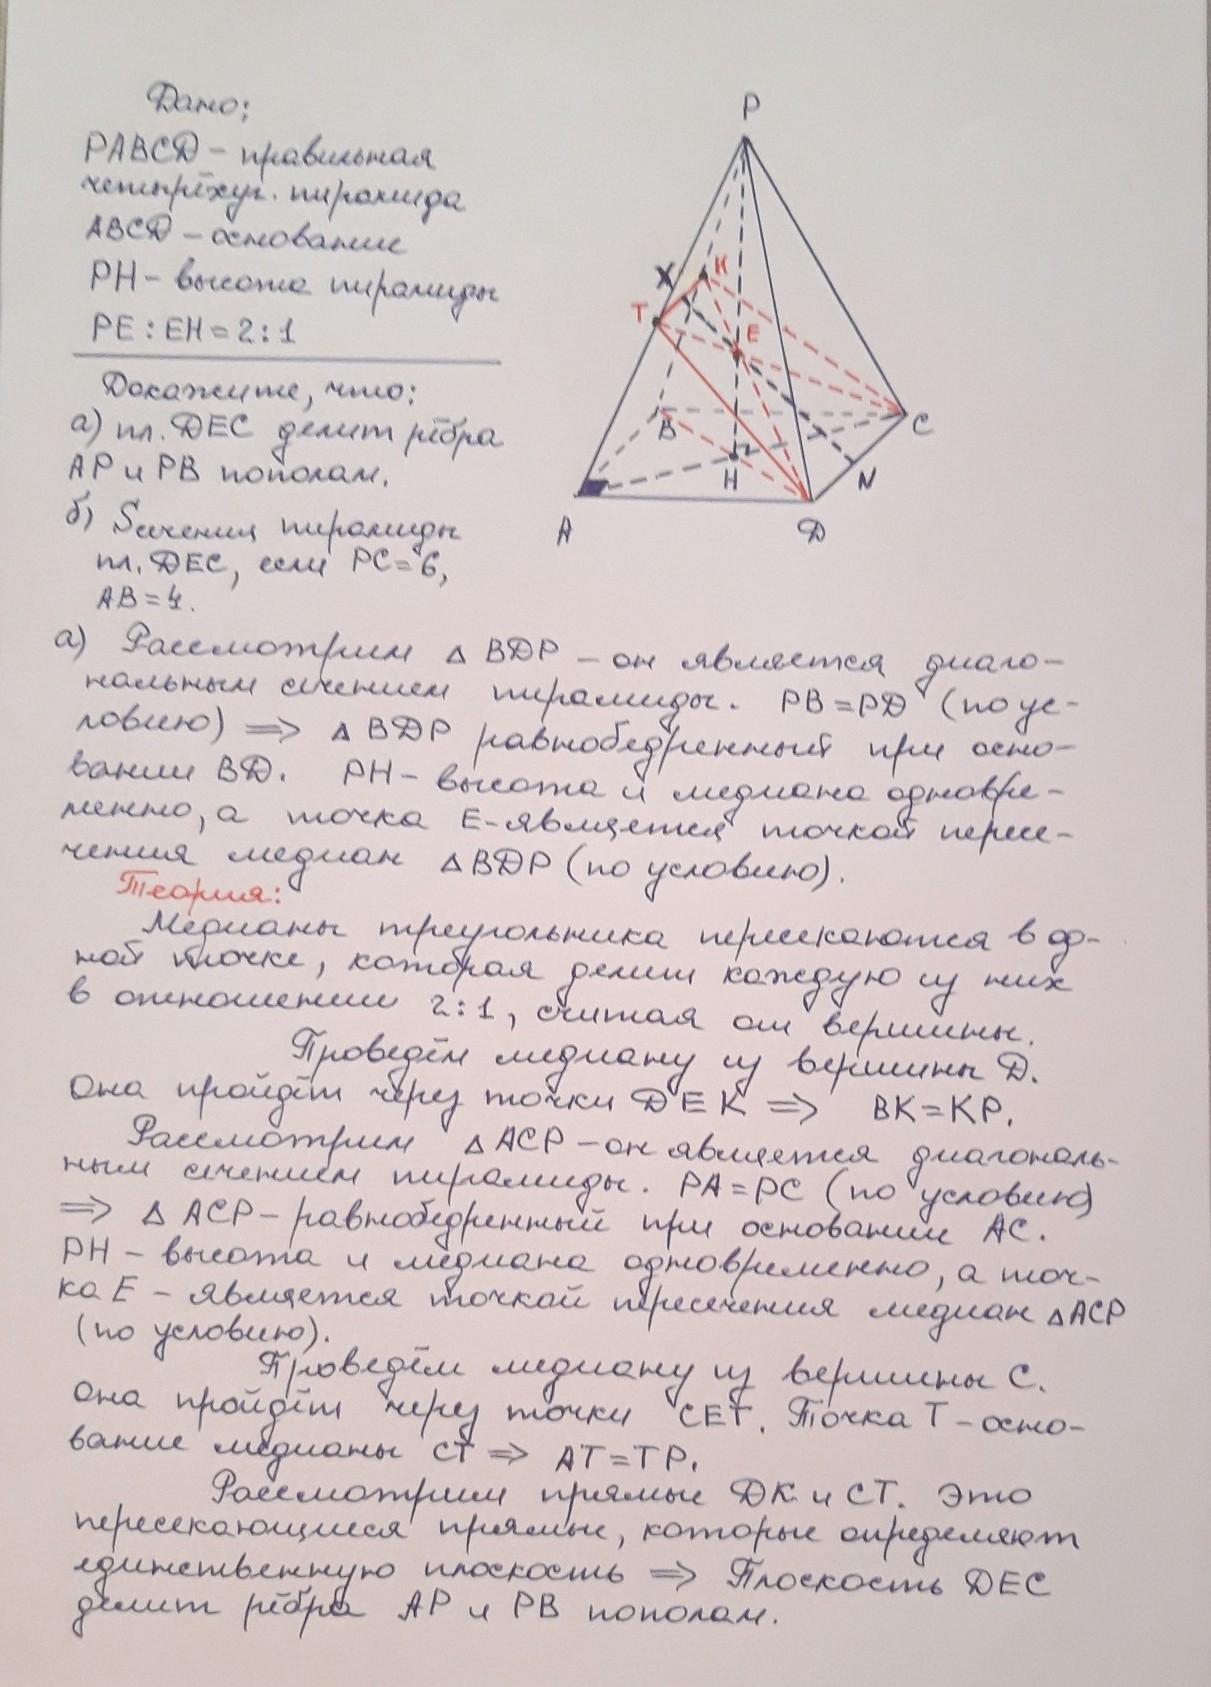 Дано:
PABCД – правильная
четырёхуг. пирамида
ABCД – основание
PH – высота пирамиды
PE : EH = 2 : 1
Докажите, что:
а) пл. ДЕС делит рёбра
AP и PB пополам.
б) Sсечения пирамиды
пл. ДЕС, если PC = 6,
AB = 4.
P
X
K
T
E
B
C
H
N
A
Д
а) Рассмотрим △ BДP – он является диаго-
нальным сечением пирамиды. PB = PД (по ус-
ловию) ⟹ △ BДP равнобедренный при осно-
вании BД. PH – высота и медиана одновре-
менно, а точка E – является точкой пересе-
чения медиан △ BДP (по условию).
Теория:
Медианы треугольника пересекаются в од-
ной точке, которая делит каждую из них
в отношении 2 : 1, считая от вершины.
Проведём медиану из вершины Д.
Она пройдёт через точки Д E K ⟹ BK = KP.
Рассмотрим △ ACP – он является диагональ-
ным сечением пирамиды. PA = PC (по условию)
⟹ △ ACP – равнобедренный при основании AC.
PH – высота и медиана одновременно, а точ-
ка E – является точкой пересечения медиан △ ACP
(по условию).
Проведём медиану из вершины C.
Она пройдёт через точки CET. Точка T – осно-
вание медианы CT ⟹ AT = TP.
Рассмотрим прямые ДK и CT. Это
пересекающиеся прямые, которые определяют
единственную плоскость ⟹ Плоскость ДEC
делит рёбра AP и PB пополам.